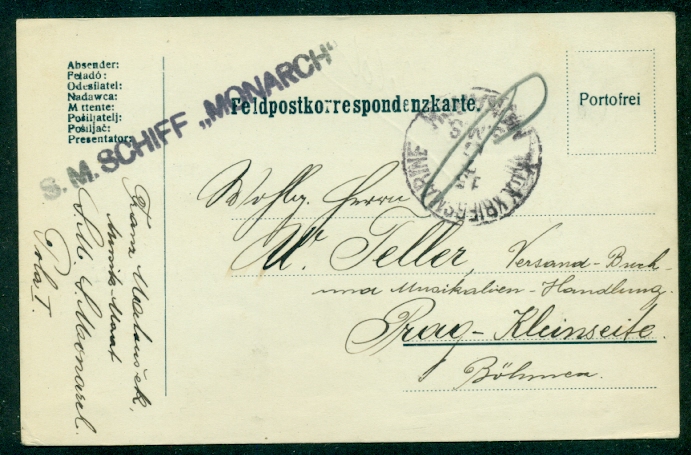 Absender:
Feladó:
Odesílatel:
Nadawca:
Mittente:
Pošiljatelj:
Pošiljač:
Presentator:
S. M. SCHIFF „MONARCH“
Feldpostkorrespondenzkarte.
Portofrei
K.u.K. KRIEGSMARINE
S.M.S.
Wohlg. Herrn
W. Teller, Versand-Buch-
und Musikalien-Handlung.
Prag-Kleinseite.
Böhmen.
Franz
S.M.S. Monarch.
Pola I.